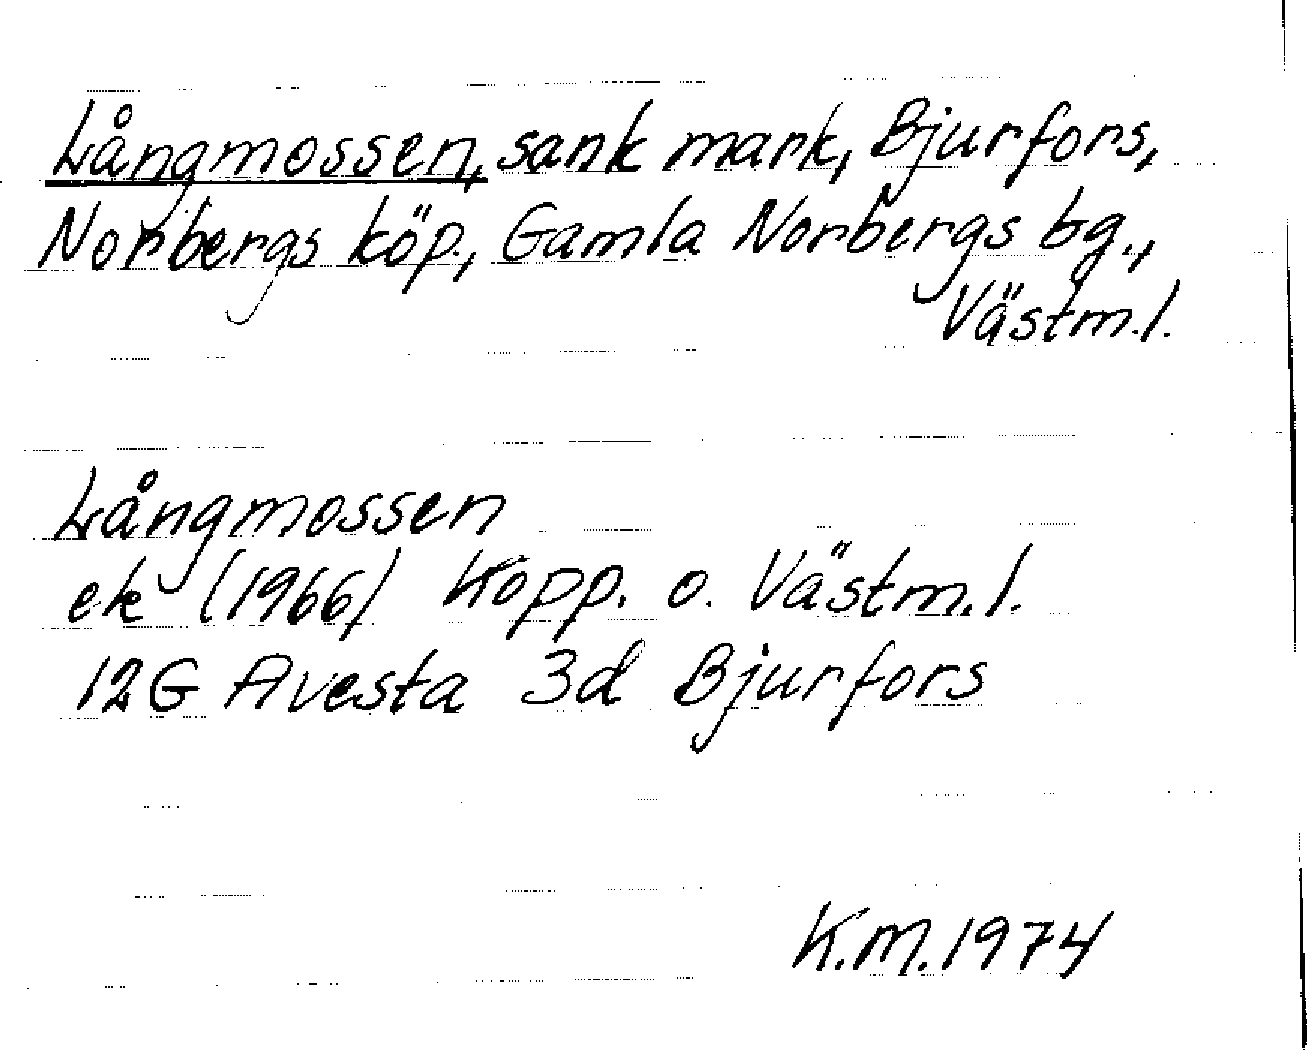 Långmossen, sank mark, Bjurfors,
Norbergs köp., Gamla Norbergs bg.,
Västm.l.
Långmossen
ek (1966) Kopp. o. Västm.l.
12G Avesta 3d Bjurfors
K.M.1974